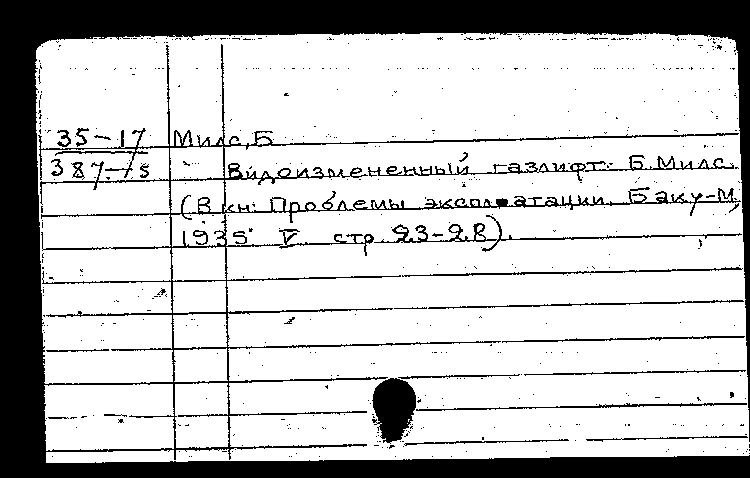 35-17 Милс, Б
387-75 Видоизмененный газлифт. Б. Милс.
(В кн: Проблемы эксплоатации. Баку-М,
1935 V стр. 23-28).